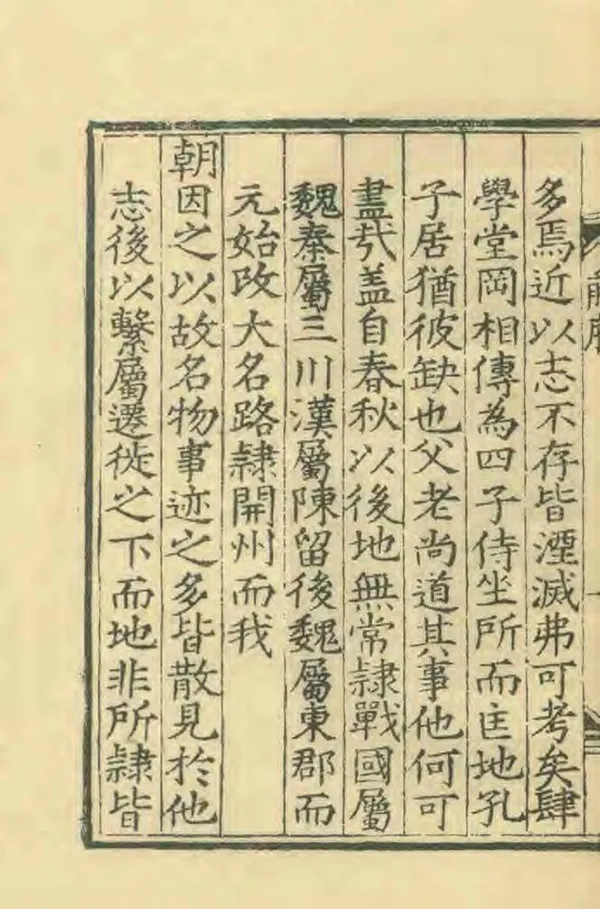 多焉近以志不存皆湮滅弗可考矣肆
學堂岡相傳為四子侍坐所而匡地孔
子居猶彼缺也父老尚道其事他何可
盡㢤盖自春秋以後地無常隷戰國屬
魏秦屬三川漢屬陳留後魏屬東郡而
元始改大名路隷開州而我
朝因之以故名物事迹之多皆散見於他
志後以繫屬遷徙之下而地非所隷皆